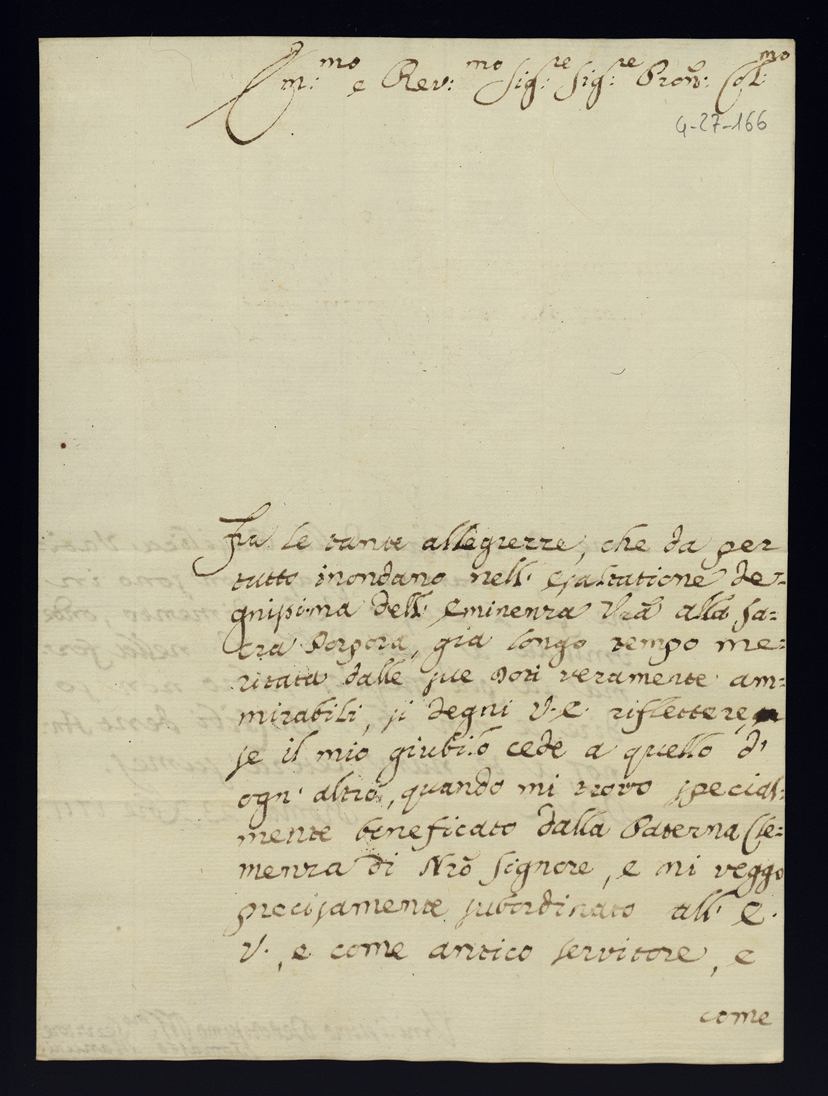 Em:mo e Rev:mo Sig:re Sig:re Pron: Col:mo
4-27-166
Fra le tante allegrezze, che da per
tutto inondano nell' esaltatione de-
gnissima dell' Eminenza Vrã alla Sa=
cra Porpora, già longo tempo me=
ritata dalle sue Doti veramente am=
mirabili, si degni V. E. riflettere,
se il mio giubilo cede a quello d'
ogn' altro, quando mi trovo special=
mente beneficato dalla Paterna Cle=
menza di Nrõ Signore, e mi veggo
precisamente subordinato all' E.
V., e come antico servitore, e
come